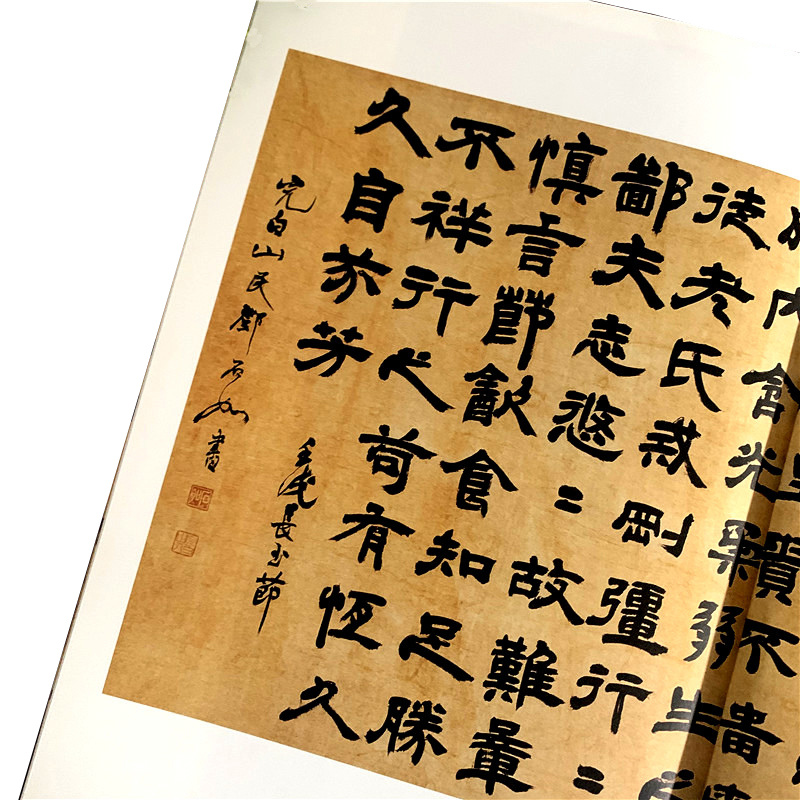 貴不
內含光柔弱生
徒老氏戒剛彊行=
鄙夫志悠=故難量
慎言節飲食知足勝
不祥行之苟有恆久
久自芬芳
壬戌長至節
完白山民鄧石如書